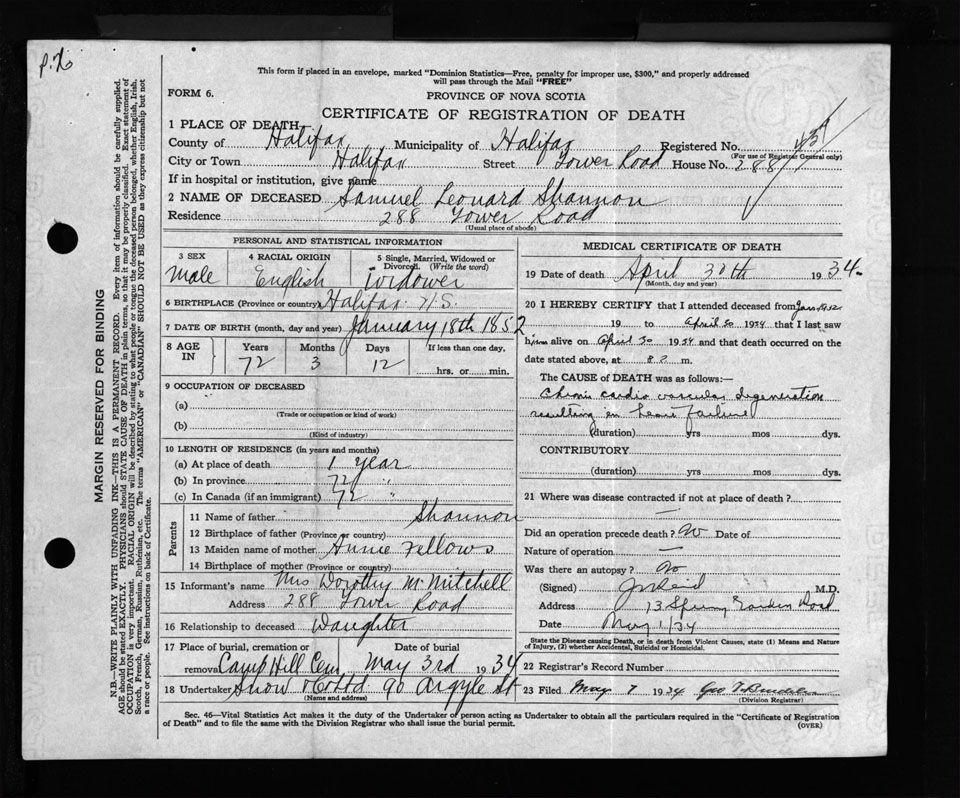 P.X
This form if placed in an envelope, marked "Dominion Statistics—Free, penalty for improper use, $300," and properly addressed
will pass through the Mail "FREE"
FORM 6.
PROVINCE OF NOVA SCOTIA
CERTIFICATE OF REGISTRATION OF DEATH
1 PLACE OF DEATH
County of Halifax Municipality of Halifax Registered No. 439
(For use of Registrar General only)
City or Town Halifax Street Tower Road House No. 288
If in hospital or institution, give name
2 NAME OF DECEASED Samuel Leonard Shannon
Residence 288 Tower Road
(Usual place of abode)
PERSONAL AND STATISTICAL INFORMATION
3 SEX 4 RACIAL ORIGIN 5 Single, Married, Widowed or Divorced. (Write the word)
Male English Widower
6 BIRTHPLACE (Province or country) Halifax N.S.
7 DATE OF BIRTH (month, day and year) January 18th 1852
8 AGE IN Years Months Days If less than one day,
72 3 12 hrs. or min.
9 OCCUPATION OF DECEASED
(a)
(Trade or occupation or kind of work)
(b)
(Kind of industry)
10 LENGTH OF RESIDENCE (in years and months)
(a) At place of death 1 year
(b) In province 72 "
(c) In Canada (if an immigrant) 72 "
Parents
11 Name of father Shannon
12 Birthplace of father (Province or country)
13 Maiden name of mother Annie Fellows
14 Birthplace of mother (Province or country)
15 Informant's name Mrs Dorothy M. Mitchell
Address 288 Tower Road
16 Relationship to deceased Daughter
17 Place of burial, cremation or removal Date of burial
Camp Hill Cem May 3rd 1934
18 Undertaker Snow & Co Ltd 90 Argyle St
(Name and address)
MEDICAL CERTIFICATE OF DEATH
19 Date of death April 30th 1934
(Month, day and year)
20 I HEREBY CERTIFY that I attended deceased from Jan 1932
19 to April 30 1934 that I last saw
him alive on April 30 1934 and that death occurred on the
date stated above, at 8 P. m.
The CAUSE of DEATH was as follows:—
Chronic cardio vascular degeneration
resulting in heart failure
(duration) yrs mos dys.
CONTRIBUTORY
(duration) yrs mos dys.
21 Where was disease contracted if not at place of death?
—
Did an operation precede death? No Date of
Nature of operation —
Was there an autopsy? No
(Signed) M.D.
Address 73 Spring Garden Road
Date May 1/34
State the Disease causing Death, or in death from Violent Causes, state (1) Means and Nature
of Injury, (2) whether Accidental, Suicidal or Homicidal.
22 Registrar's Record Number
23 Filed May 7 1934 Geo
(Division Registrar)
Sec. 46—Vital Statistics Act makes it the duty of the Undertaker or person acting as Undertaker to obtain all the particulars required in the "Certificate of Registration
of Death" and to file the same with the Division Registrar who shall issue the burial permit.
(OVER)
MARGIN RESERVED FOR BINDING
N.B.—WRITE PLAINLY WITH UNFADING INK—THIS IS A PERMANENT RECORD. Every item of information should be carefully supplied.
AGE should be stated EXACTLY. PHYSICIANS should STATE CAUSE OF DEATH in plain terms, so that it may be properly classified. Exact statement of
OCCUPATION is very important. RACIAL ORIGIN will be described by stating to what people or tongue the deceased person belonged, whether English, Irish,
Scotch, French, German, Russian, Ruthenian, etc. The terms "AMERICAN" or "CANADIAN" SHOULD NOT BE USED as they express citizenship but not
a race or people. See instructions on back of Certificate.